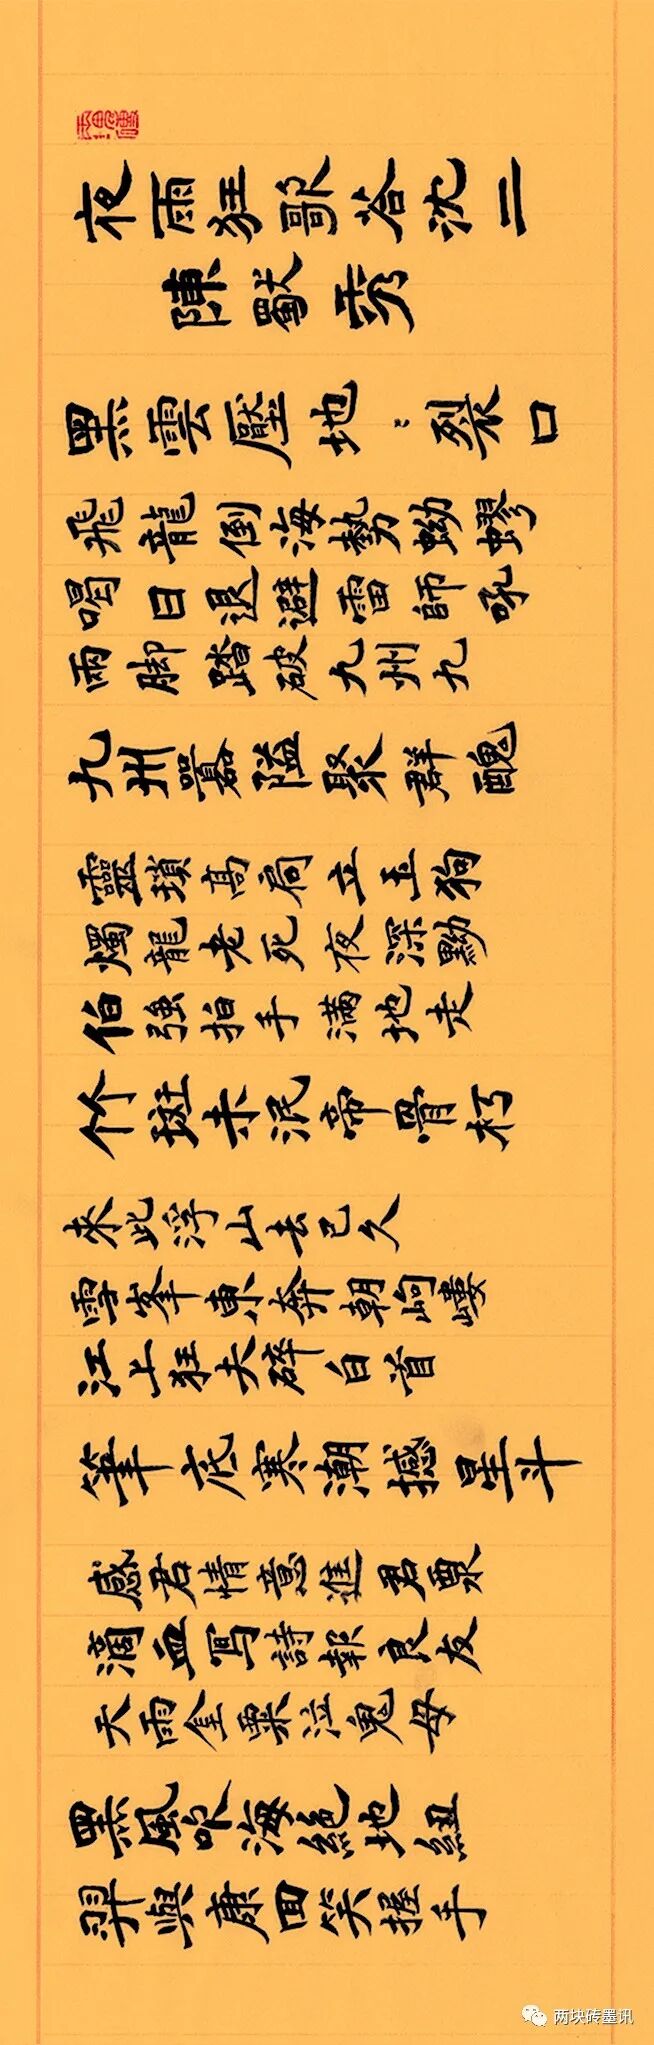 夜雨狂歌答沈二
陳獨秀
黑雲壓地地裂口
飛龍倒海勢蚴蟉
喝日退避雷師吼
兩脚踏破九州九
九州囂隘聚群醜
靈瑣高扃立玉狗
燭龍老死夜深黝
伯強拍手滿地走
竹斑未泯帝骨朽
來此浮山去已久
雪峯東奔朝岣嶁
江上狂夫碎白首
筆底寒潮撼星斗
感君情意進君
滴血寫詩報良友
天雨金粟泣鬼母
黑風吹海絕地紐
羿與康回笑握手
两块砖墨讯